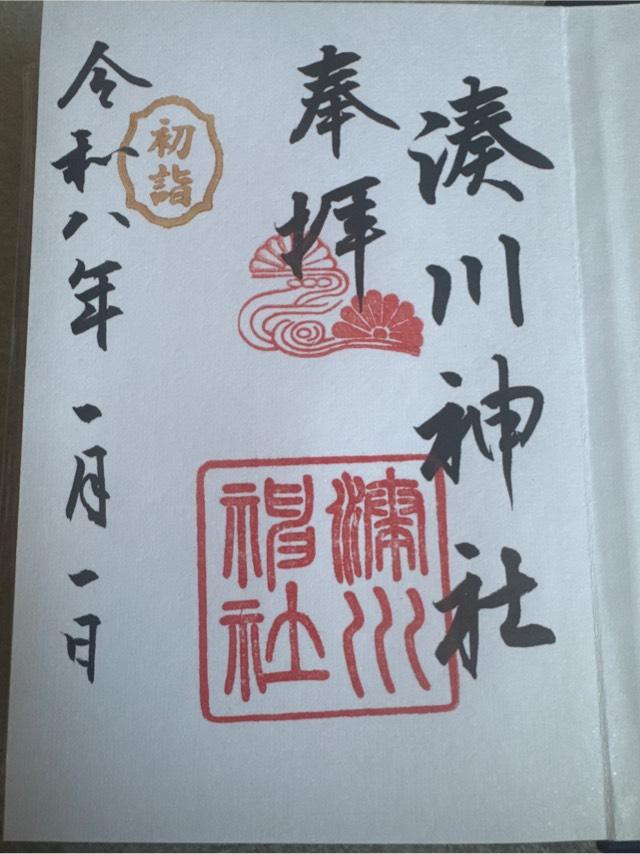 湊川神社
奉拝
初詣
令和八年一月一日
湊川
神社